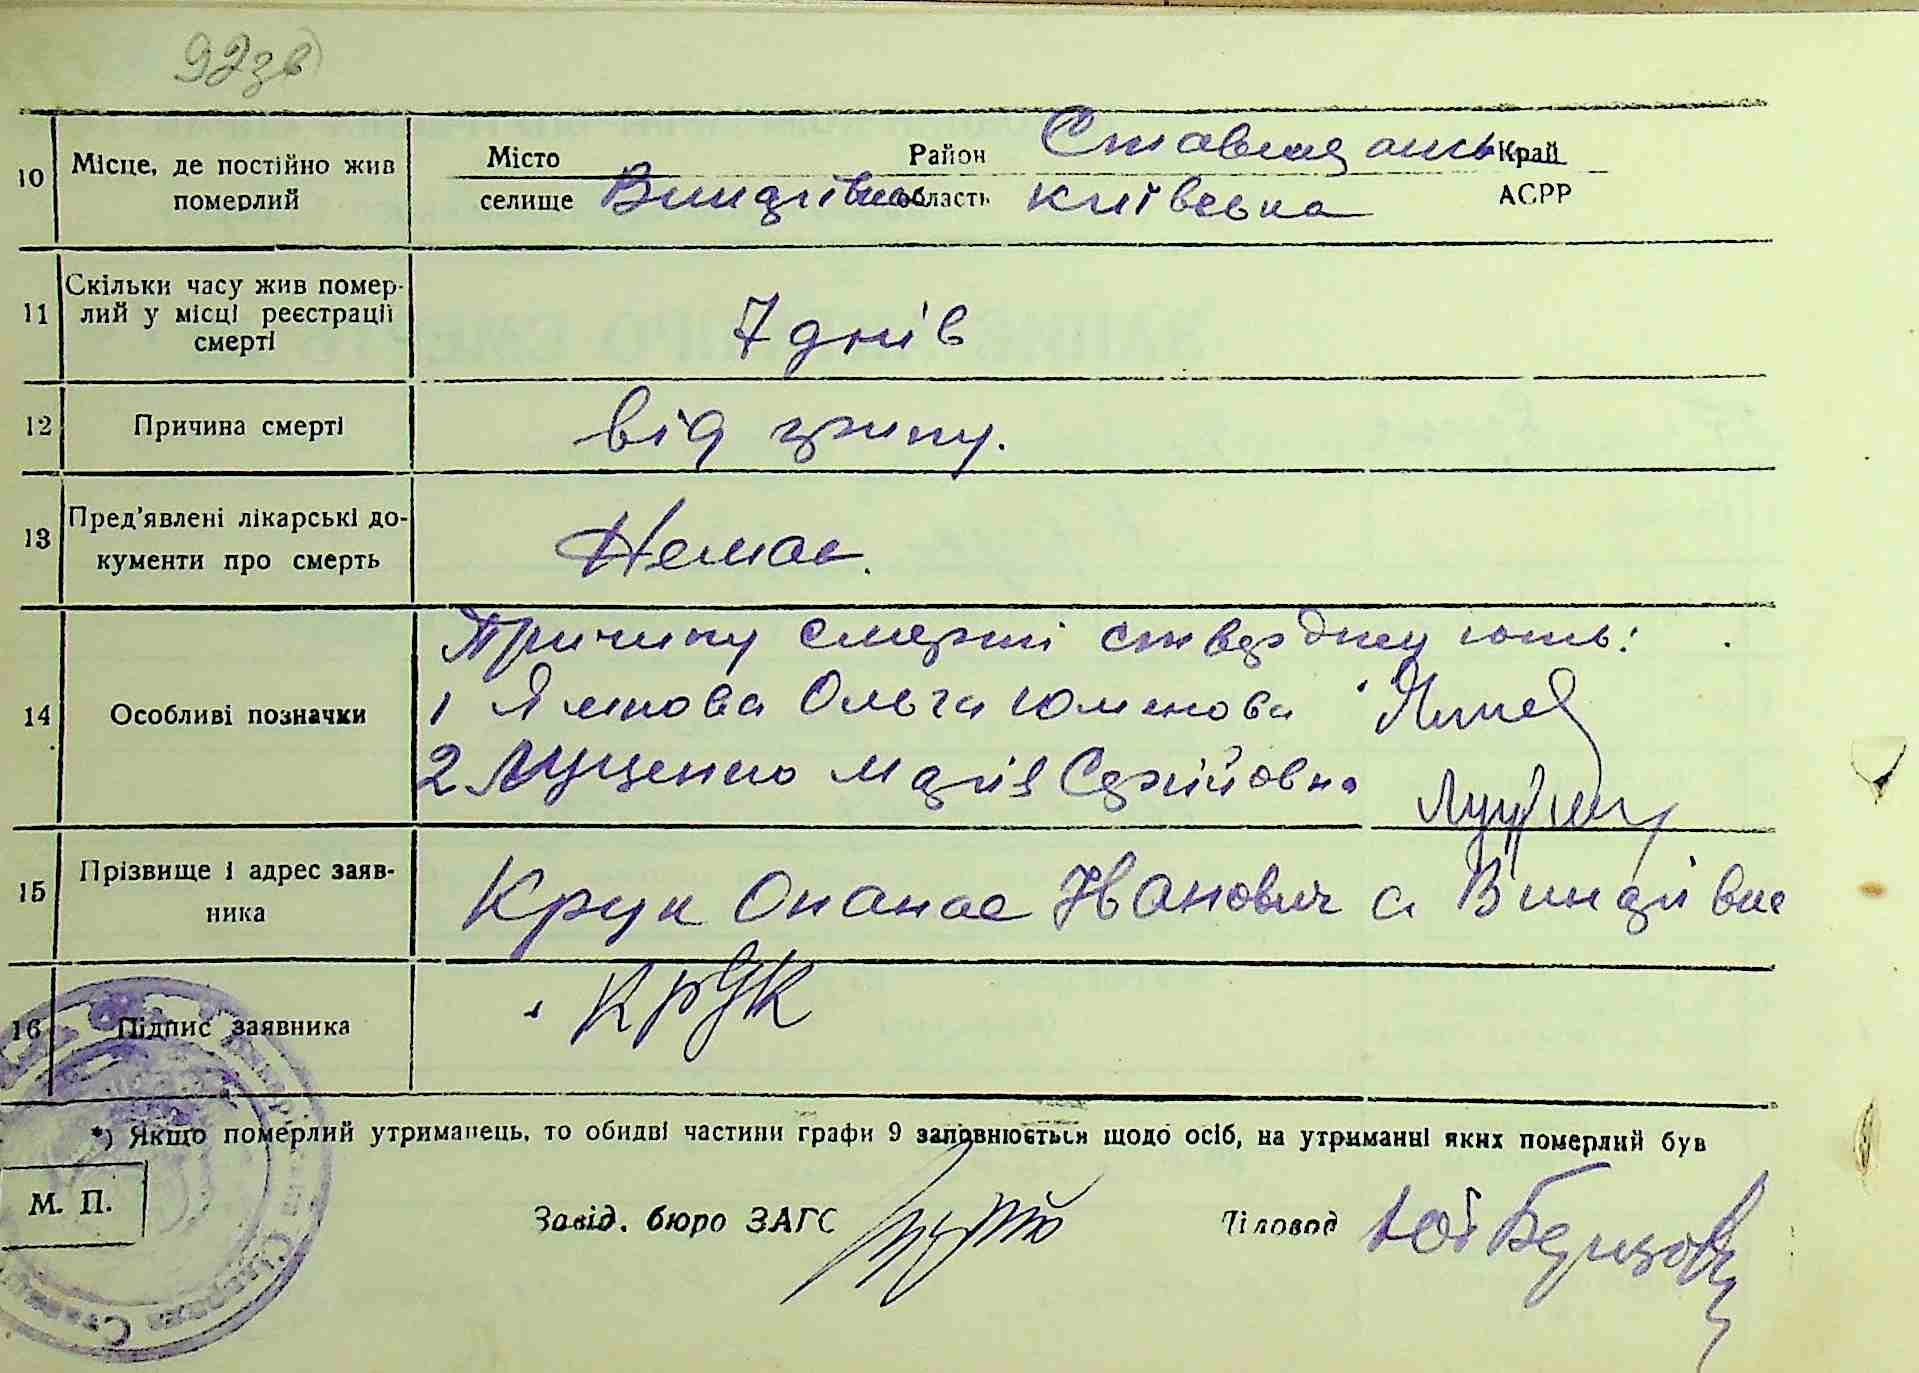 92зв
10 Місце, де постійно жив померлий
Місто Район Ставищанськ Край
селище Винарівка область київська АСРР
11 Скільки часу жив помер-
лий у місці реєстрації
смерті
7 днів
12 Причина смерті
від грипу.
13 Пред'явлені лікарські до-
кументи про смерть
Немає.
14 Особливі позначки
Причину смерті стверджують:
1 Ольга
2 Луценко Марія Сергійовна
15 Прізвище і адрес заяв-
ника
Крук Опанас Іванович с Винарівка
16 Підпис заявника
КРУК
*) Якщо померлий утриманець, то обидві частини графи 9 заповнюється щодо осіб, на утриманні яких померлий був
М. П.
Завід. бюро ЗАГС
Діловод